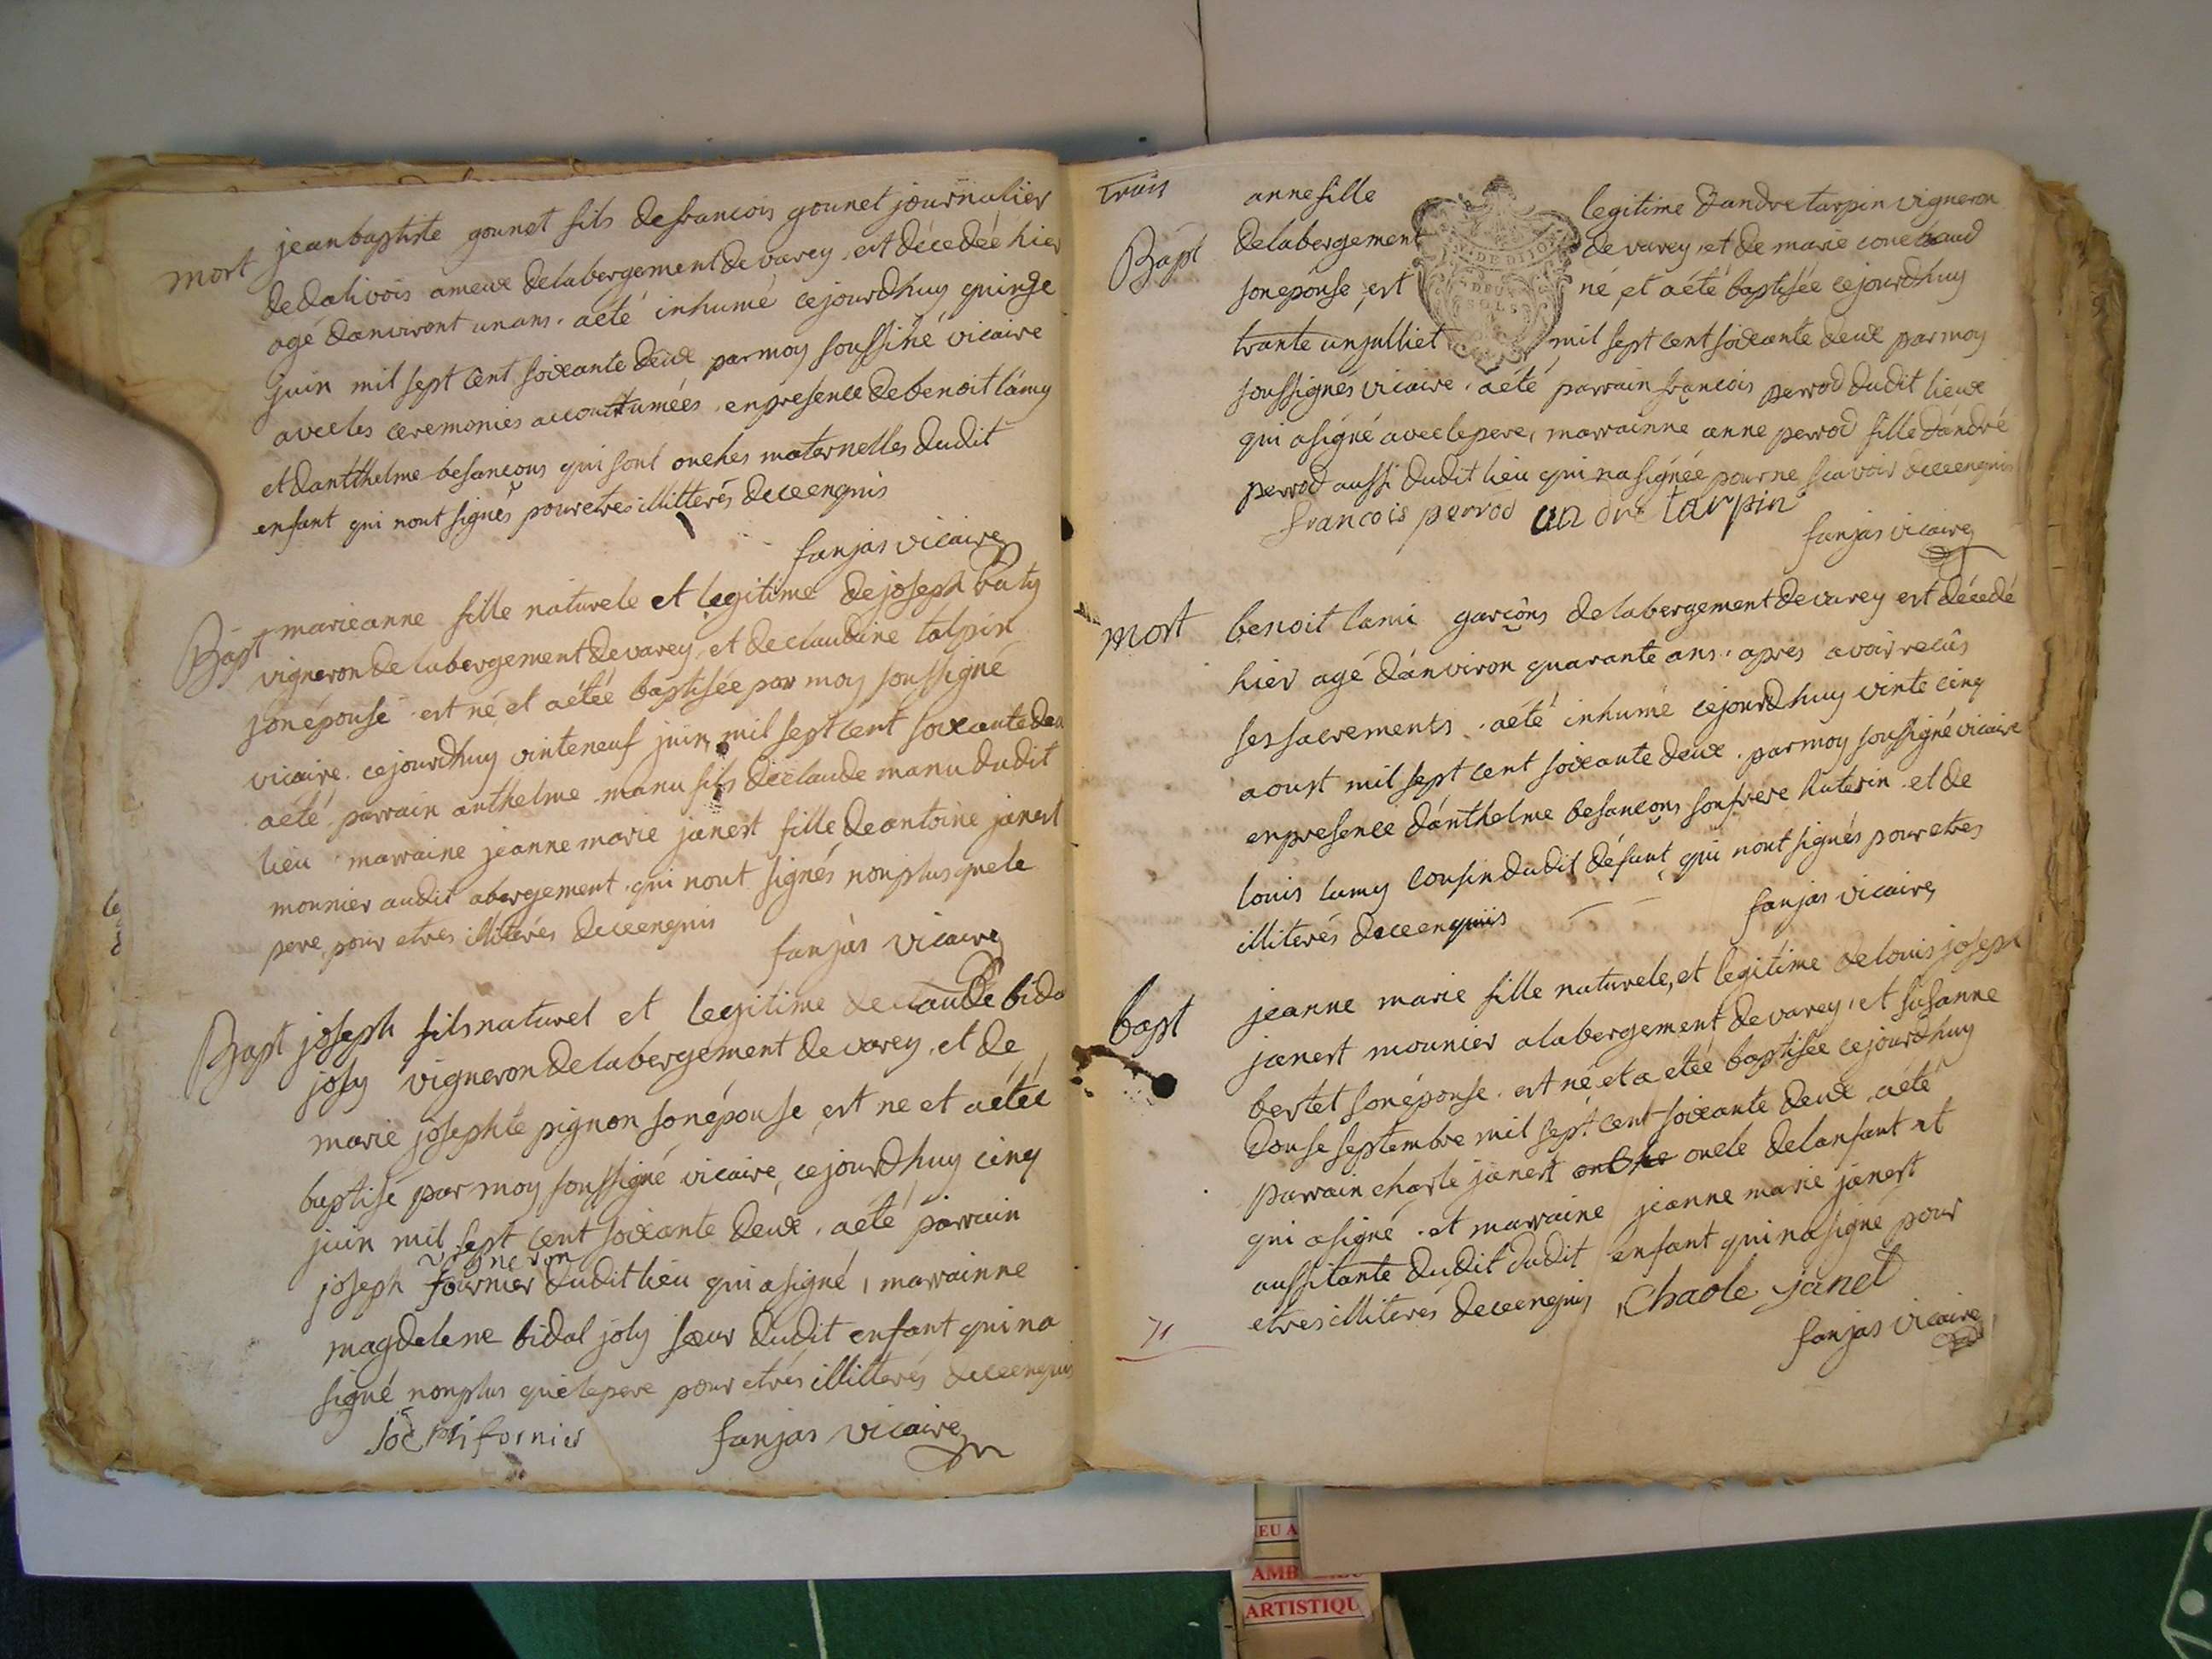 mort jeanbaptiste gounet fils defrancois gounet journalier
dedalivois ameux delabergement de varey, est décedéé hier
agé danviront unans. aeté inhumé cejourdhuy quinze
juin mil sept cent soixante deux par moy soussiné vicaire
avecles ceremonies accouttumées enpresence debenoit lámy
et dantthelme besancons qui sont oncles maternelles dudit
enfant qui nont signés pour etres illitterés deceenquis
fanjas vicaire
Bapt marieanne fille naturele et legitime dejoseph baty
vigneron delabergement devarey, et declaudine talpin
sonépouse est né et aétée baptisée par moy soussigné
vicaire cejourdhuy vinteneuf juin mil sept cent soixante deu
aété parrain anthelme manu fils declaude manu dudit
lieu marraine jeanne marie janest fille de antoine janest
mounier audit abergement qui nont signés nonplusquele
pere pour etres illiterés deceenquis
fanjas vicaire
Bapt joseph fils naturel et legitime declaude bida
joly vigneron delabergement devarey, et de
marie josephte pignon sonépouse est ne et aétéé
baptisé par moy soussigné vicaire, cejourdhuy cinq
juin mil sept cent soixante deux. aété parrain
vigneron
joseph fournier dudit lieu qui asigné, marrainne
magdelene bidal joly sœur dudit enfant quina
signé nonplus quelepere pour etrés illitterés deceenquis
fornier
fanjas vicaire
trois
anne fille legitime dandre tarpin vigneron
Bapt delabergement de varey, et de marie
sonépouse, est né et aété baptisée cejourdhuy
trante unjulliet mil sept cent soixante deux par moy
soussignés vicaire. aété parrain francois perrod dudit lieux
qui asigné aveclepere, marrainne anne perrod fille dándré
perrod aussi dudit lieu qui nasignéé pour ne scavoir deceenquis
francois perrod andre tarpin
fanjas vicaire
mort benoit lami garcons delabergement de varey est décedé
hier agé dánviron quarante ans. aprés avoir recûs
ses sacrements. aété inhumé cejourdhuy vinte cinq
aoust mil sept cent soixante deux. par moy soussigné vicaire
enpresence dánthelme besancons son frere huterin et de
louis lamy cousin dudit défunt qui nont signés pour etres
illiterés deceenquis
fanjas vicaire
bapt jeanne marie fille naturele, et legitime delouis joseph
janest mounier alabergement devarey, et susanne
bertet sonépouse. est né et a etéé baptisée cejourdhuy
douse septembre mil sept cent soixante deux. aété
parrain charle janest oncle delanfant et
qui asigné. et marraine jeanne marie janest
aussitante dudit dudit enfant quinasigné pour
etres illiterés deceenquis Chaole janet
fanjas vicaire
EU A
AMB
ARTISTIQU